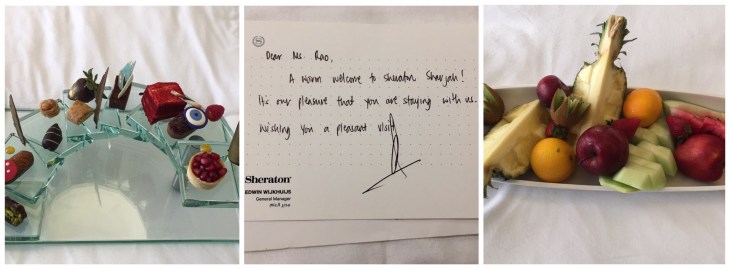 Dear Ms. Rao,
A warm welcome to Sheraton Sharjah!
It's our pleasure that you are staying with us.
Wishing you a pleasant visit
Sheraton
EDWIN WIJKHUIJS
General Manager
مدير العام